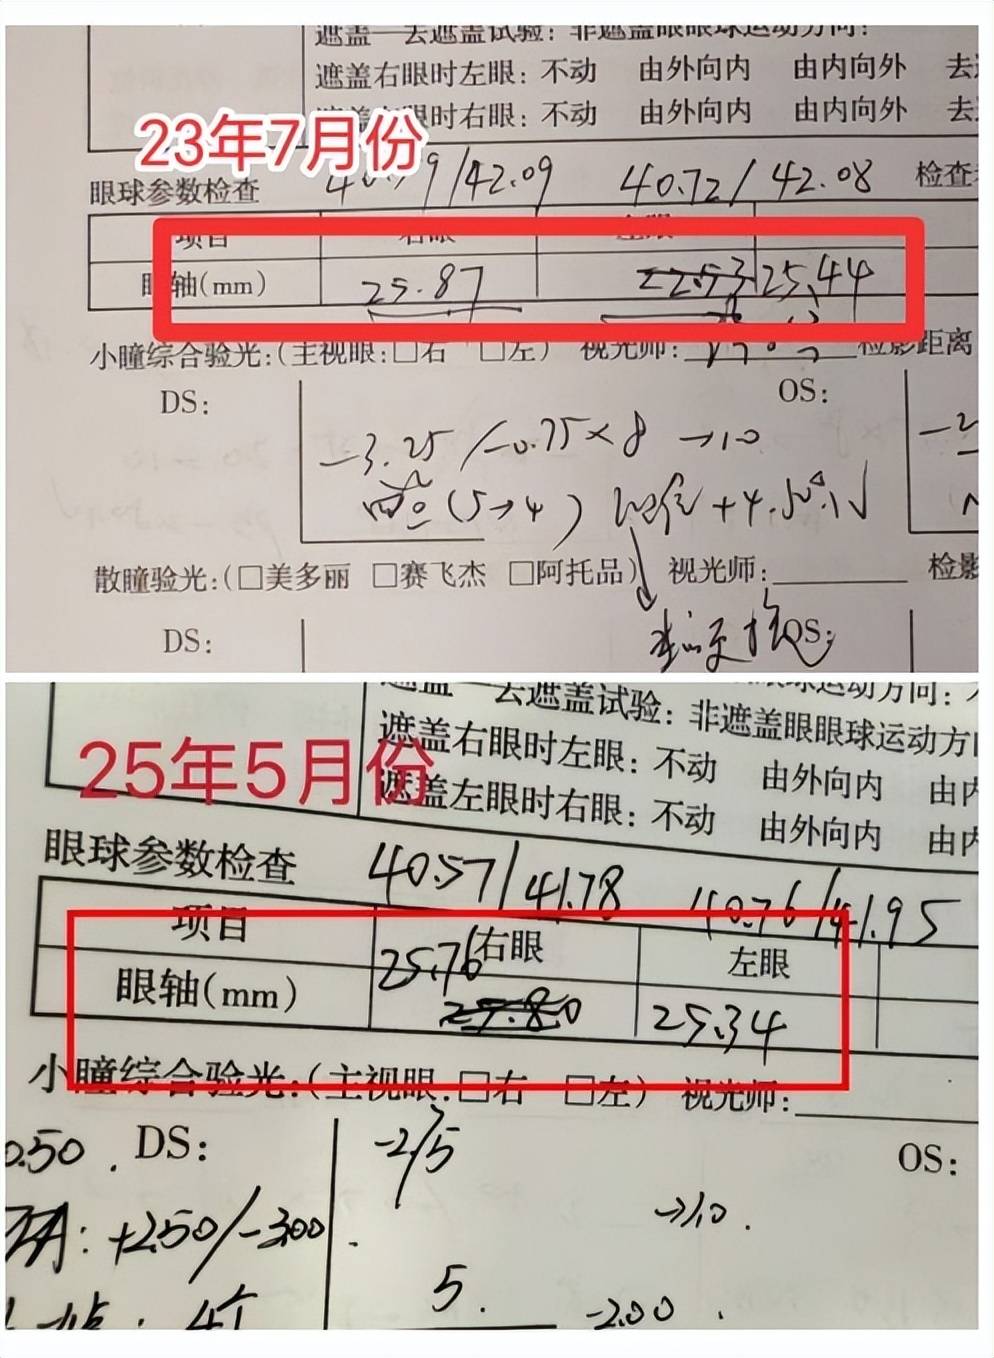 遮盖一去遮盖试验：非遮盖眼眼球运动方向：
遮盖右眼时左眼：不动 由外向内 由内向外 去
眼时右眼：不动 由外向内 由内向外 去
23年7月份
眼球参数检查 /42.09 40.72/42.08 检查
项目 右眼 左眼
眼轴(mm) 25.87 25.44
小瞳综合验光：(主视眼：□右 □左) 视光师： 检影距离
DS： OS：
-3.25/-0.75×8 →1.0
(5→4) +4.50
散瞳验光：(□美多丽 □赛飞杰 □阿托品) 视光师： 检影
DS： OS：
去遮盖试验：非遮盖眼眼球运动方向：
遮盖右眼时左眼：不动 由外向内 由内
25年5月份
遮盖左眼时右眼：不动 由外向内 由内
眼球参数检查 40.57/41.78 40.76/41.95
项目 右眼 左眼
眼轴(mm) 25.76 25.80 25.34
小瞳综合验光：(主视眼：□右 □左) 视光师：
0.50 . DS： OS：
→1.0 .
: +2.50/-3.00
5. -2.00 .